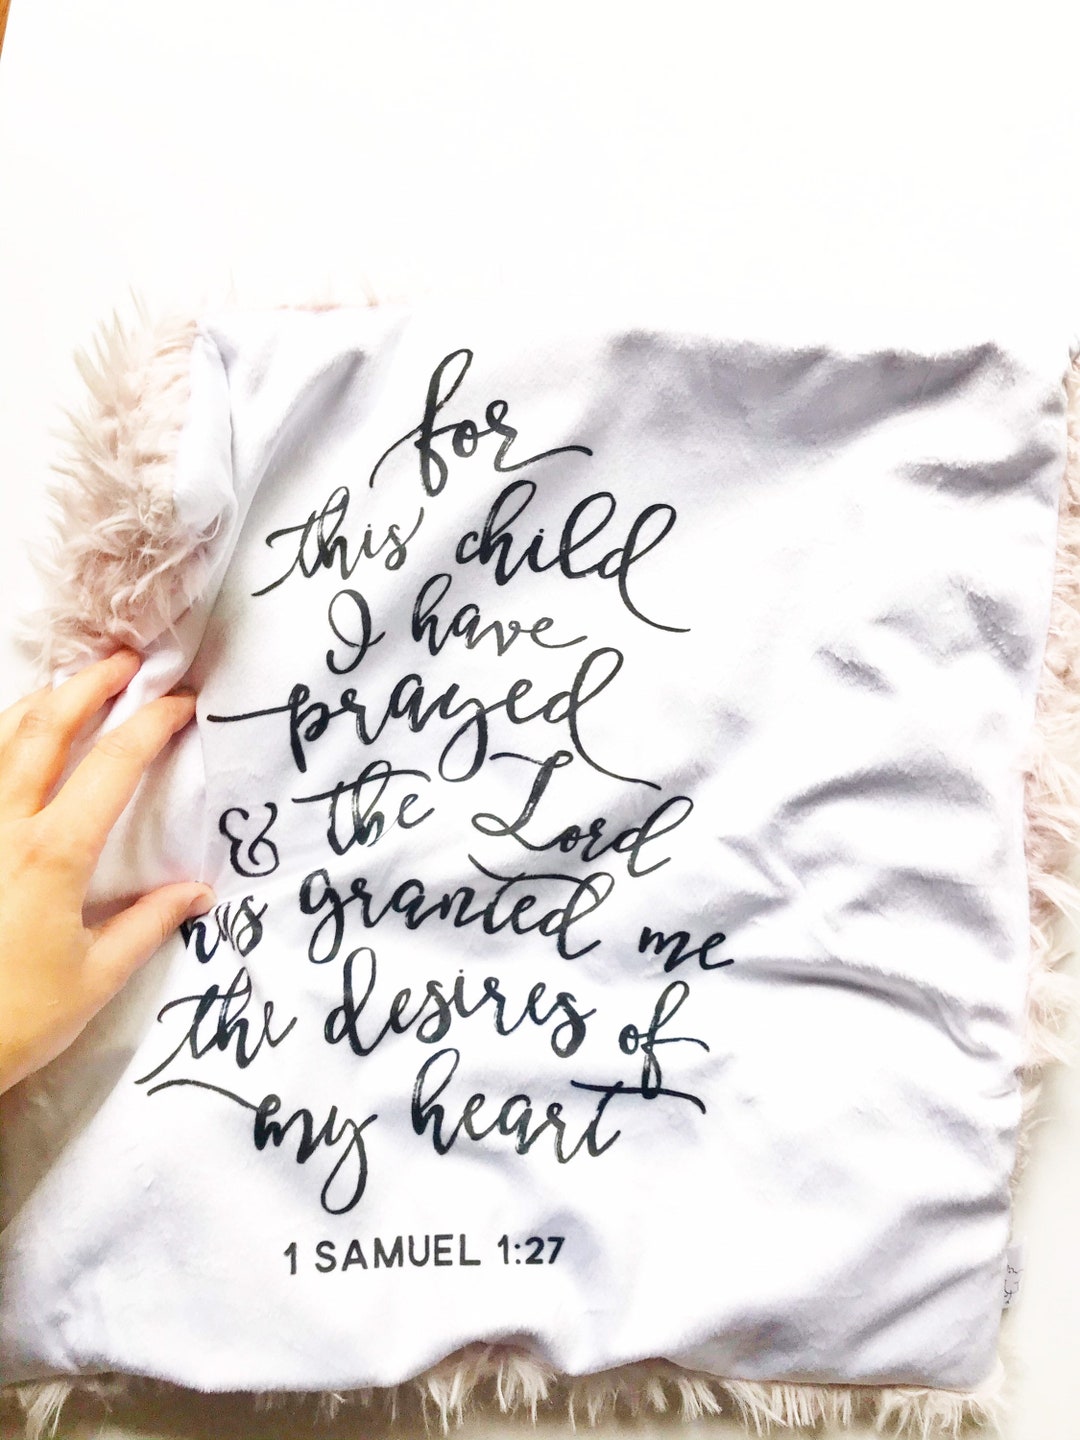 for
this child
I have
prayed
& the Lord
has granted me
the desires of
my heart
1 SAMUEL 1:27